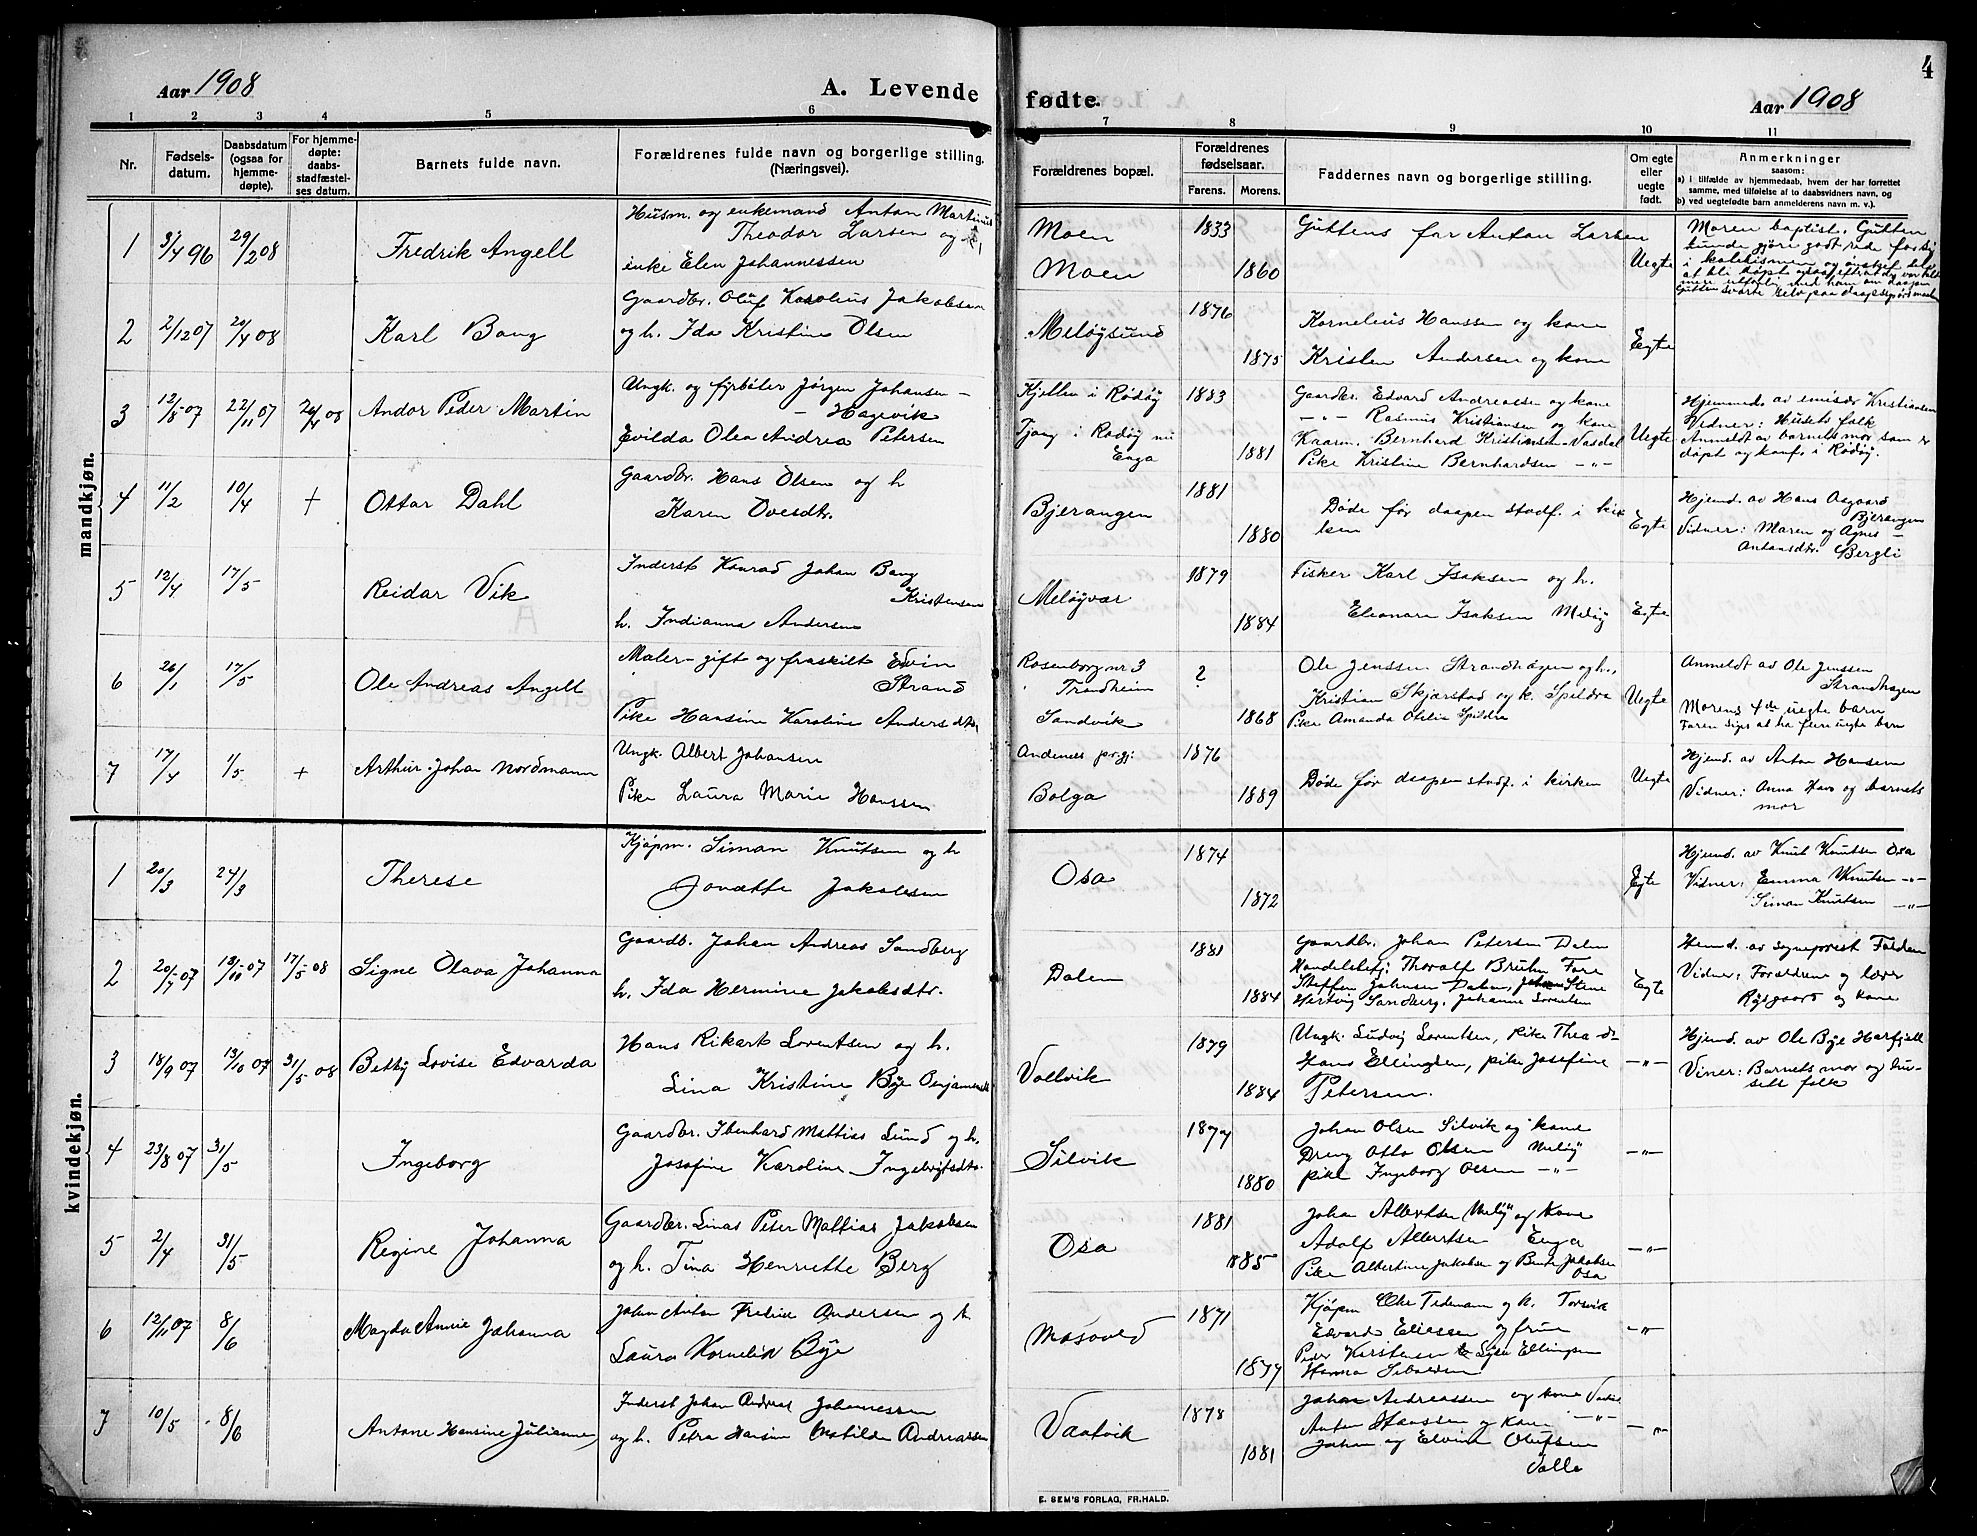 4
Aar 1908
A. Levende fødte.
Aar 1908
1 2 3 4 5 6 7 8 9 10 11
Nr.
Fødsels-
datum.
Daabsdatum
(ogsaa for
hjemme-
døpte).
For hjemme-
døpte:
daabs-
stadfæstel-
ses datum.
Barnets fulde navn.
Forældrenes fulde navn og borgerlige stilling.
(Næringsvei).
Forældrenes bopæl.
Forældrenes
fødselsaar.
Farens. Morens.
Faddernes navn og borgerlige stilling.
Om egte
eller
uegte
født.
Anmerkninger
saasom:
a) i tilfælde av hjemmedaab, hvem der har forrettet
samme, med tilføielse af to daabsvidners navn, og
b) ved uegtefødte barn anmelderens navn m. v.).
mandkjøn.
1 3/4 96 29/2 08 Fredrik Angell
Husm. og enkemand Anton Martinus
Theodor Larsen og
enke Elen Johannessen
Moen
Moen
1833
1860
Guttens far Anton Larsen
Uegte
Moren baptist. Gutten
kunde gjøre godt rede for sig
i katekismen og ønsket
2 2/12 07 20/4 08 Karl Bang
Gaardbr. Oluf Karolius Jakobsen
og h. Ida Kristine Olsen
Meløysund
1876
1875
Kornelius Hanssen og kone
Kristen Andersen og kone
Egte
3 12/8 07 22/11 07 20/4 08 Andor Peder Martin
Ungk. og fyrbøter Jørgen Johansen -
- Hagevik
Evilda Olea Andrea Petersen
Kjellan i Rødøy
Tjong i Rødøy nu
Enga
1883
1881
Gaardbr. Edvard Andreassen og kone
-"- Rasmus Kristiansen og kone
Kaaren. Bernhard Kristiansen - Vasdal
Pike Kristine Bernhardsen -"-
Uegte
Hjemmed. av emisær Kristiansen
Vidner: Husets folk
Anmeldt av barnets mor som er
døpt og konf. i Rødøy.
4 11/2 10/4 + Ottar Dahl
Gaardbr. Hans Olsen og h
Karen Ovesdtr.
Bjerangen
1881
1880
Døde før daapen stadf. i kir
ken
Egte
Hjemd. av Hans Aagaard
Bjerangen
Vidner: Maren og Agnes -
Antonsdtr. Bergli
5 12/4 17/5 Reidar Vik
Inderst Konrad Johan Bang
Kristensen
h. Indianna Andersen
Meløyvær
1879
1884
Fisker Karl Isaksen og h.
Eleonora Isaksen Meløy
Egte
6 26/1 17/5 Ole Andreas Angell
Maler - gift og fraskilt Edvin
Strand
Pike Hansine Karoline Andersdtr.
Rosenborg nr 3
Trondheim
Sandvik
?
1868
Ole Jenssen Strandhagen og h.,
Kristian Skjærstad og k. Spildra
Pike Amanda Otelia Spildra
Uegte
Anmeldt av Ole Jenssen
Strandhagen
Morens 4de uegte barn
Faren siges at ha flere uegte barn
7 17/4 1/5 + Arthur Johan Nordmann
Ungk. Albert Johansen
Pike Laura Marie Hanssen
Andenes prgj.
Bolga
1876
1889
Døde før daapen stadf. i kirken
Uegte
Hjemd. av Anton Hansen
Vidner: Anna Havs og barnets
mor
kvindekjøn.
1 20/3 24/3 Therese
Kjøpm. Simon Knutsen og h
Jonette Jakobsen
Osa
1874
1872
Egte
Hjemd. av Knut Knutsen Osa
Vidner: Emma Knutsen -"-
Simon Knutsen -"-
2 20/7 07 13/10 07 17/5 08 Signe Olava Johanna
Gaardb. Johan Andreas Sandberg
h. Ida Hermine Jakobsdtr.
Dalen
1881
1884
Gaardbr. Johan Petersen Dalen
Handelsbetj. Thoralf Bruhn Fore
Steffen Johnsen Dalen, Stene
Hertvig Sandberg, Johanne Lorentsen
Egte
Hemd. av sogneprest Falden
Vidner: Forældrene og lærer
Rysgaard og kone
3 18/9 07 13/10 07 31/5 08 Betty Lovise Edvarda
Hans Rikart Lorentsen og h.
Lina Kristine Bye Benjaminsd.
Valvik
1879
1884
Ungk. Ludvig Lorentsen, pike Thea
Hans Ellingsen, pike Josefine
Petersen.
-"-
Hjemd. av Ole Bye Harfjell
Viner: Barnets mor og hu-
sets folk
4 23/8 07 31/5 Ingeborg
Gaardbr. Ibenhard Mattias Lund og h.
Josefine Karoline Ingebrigtsdtr.
Silvik
1877
1880
Johan Olsen Silvik og kone
Dreng Otto Olsen Meløy
pike Ingeborg Olsen -"-
-"-
5 2/4 31/5 Regine Johanna
Gaardbr. Linas Peter Mattias Jakobsen
og h. Tina Henriette Berg
Osa
1881
1885
Johan Albertsen Meløy og kone
Adolf Albertsen Enga
Pike Albertine Jakobsen og Bente Jakobsen
Osa
-"-
6 12/11 07 8/6 Magda Annie Johanna
Johan Anton Fredrik Andersen og h
Laura Kornelia Bye
Mosvold
1871
1877
Kjøpm Ole Tidemann og k. Torsvik
Edvard Eliassen og frue
Peder Karstensen Ellingsen
Hanna Sibaldsen
-"-
7 10/5 8/6 Antone Hansine Julianne
Inderst Johan Andreas Johannessen
og h. Petra Hansine Matilde Andreassen
Vaatvik
1878
1881
Johan Andreassen og kone
Anton Hanssen og kone -"-
Johan og Elvine Olufsen
Valle
-"-
E. SEM'S FORLAG, FR.HALD.